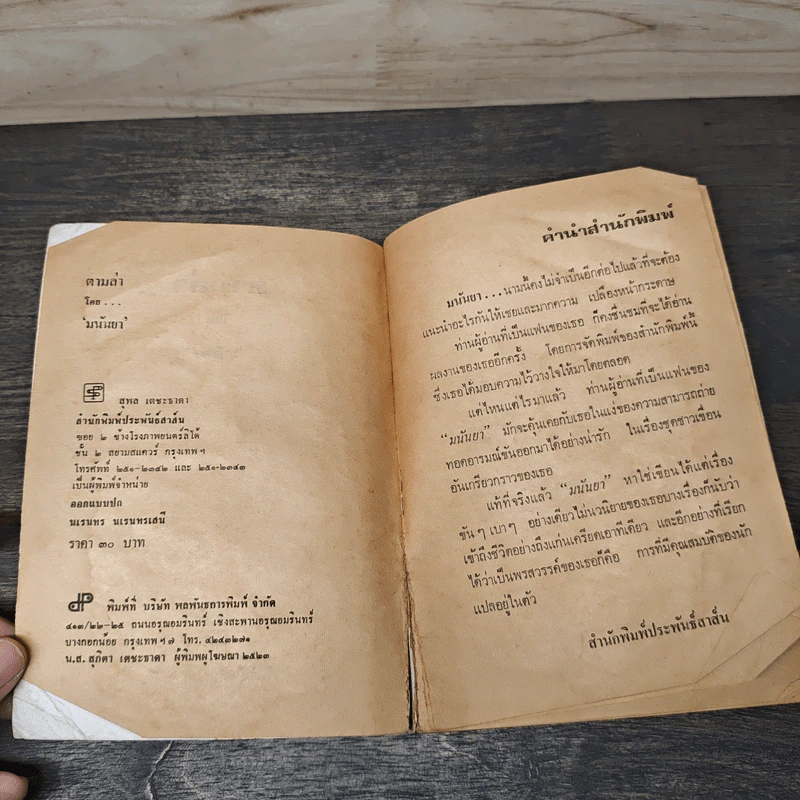 ตามล่า
โดย ...
'มนันยา'
สุพล เตชะธาดา
สำนักพิมพ์ประพันธ์สาส์น
ซอย ๒ ข้างโรงภาพยนตร์ลิโด้
ชั้น ๒ สยามสแควร์ กรุงเทพฯ
โทรศัพท์ ๒๕๑-๒๓๔๒ และ ๒๕๑-๒๓๔๓
เป็นผู้พิมพ์จำหน่าย
ออกแบบปก
นเรนทร นเรนทรเสนี
ราคา ๓๐ บาท
พิมพ์ที่ บริษัท พลพันธ์การพิมพ์ จำกัด
๔๑๓/๒๒-๒๕ ถนนอรุณอมรินทร์ เชิงสะพานอรุณอมรินทร์
บางกอกน้อย กรุงเทพฯ ๗ โทร. ๔๒๔๓๒๗๑
น.ส. สุภิตา เตชะธาดา ผู้พิมพ์ผู้โฆษณา ๒๕๒๓
คำนำสำนักพิมพ์
มนันยา ... นามนี้คงไม่จำเป็นอีกต่อไปแล้วที่จะต้อง
แนะนำอะไรกันให้เชยและมากความ เปลืองหน้ากระดาษ
ท่านผู้อ่านที่เป็นแฟนของเธอ ก็คงชื่นชมที่จะได้อ่าน
ผลงานของเธออีกครั้ง โดยการจัดพิมพ์ของสำนักพิมพ์นี้
ซึ่งเธอได้มอบความไว้วางใจให้มาโดยตลอด
แต่ไหนแต่ไรมาแล้ว ท่านผู้อ่านที่เป็นแฟนของ
“มนันยา” มักจะคุ้นเคยกับเธอในแง่ของความสามารถถ่าย
ทอดอารมณ์ขันออกมาได้อย่างน่ารัก ในเรื่องชุดชาวเขื่อน
อันเกรียวกราวของเธอ
แท้ที่จริงแล้ว “มนันยา” หาใช่เขียนได้แต่เรื่อง
ขัน ๆ เบา ๆ อย่างเดียวไม่ นวนิยายของเธอบางเรื่องก็นับว่า
เข้าถึงชีวิตอย่างถึงแก่นเครียดเอาทีเดียว และอีกอย่างที่เรียก
ได้ว่าเป็นพรสวรรค์ของเธอก็คือ การที่มีคุณสมบัติของนัก
แปลอยู่ในตัว
สำนักพิมพ์ประพันธ์สาส์น